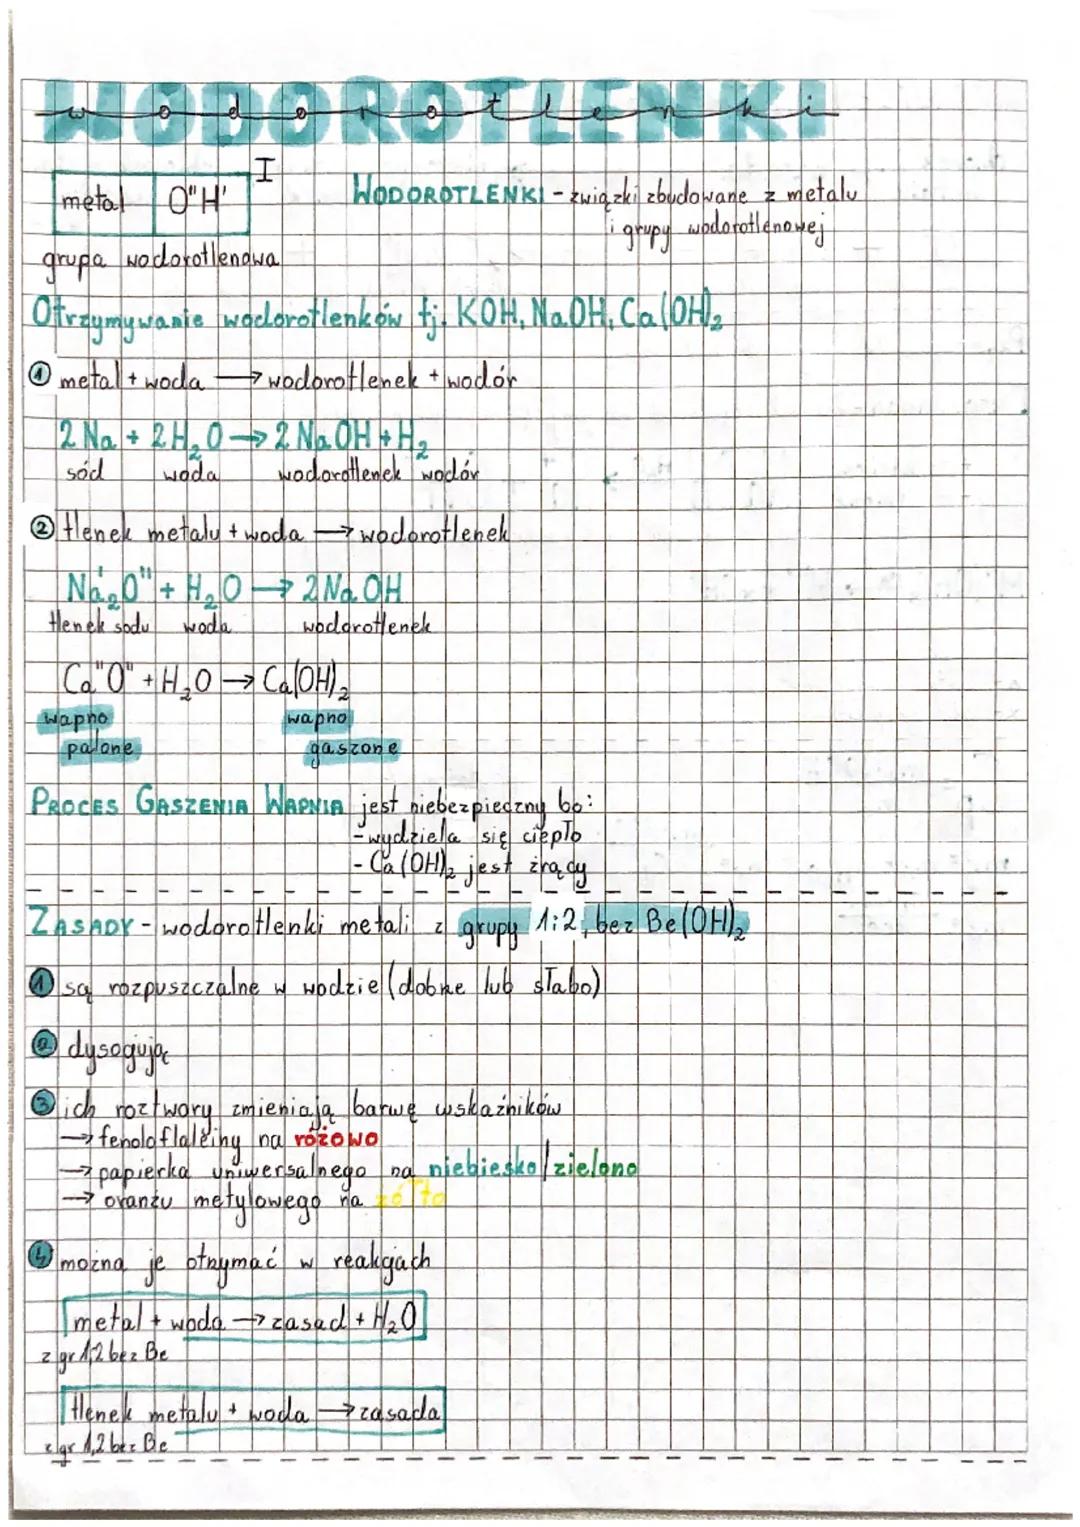 WODOROTLENKI
wodorotlenki
metal O"H' I
WODOROTLENKI - związki zbudowane z metalu
i grupy wodorotlenowej
grupa wodorotlenowa
Otrzymywanie wodorotlenków tj. KOH, NaOH, Ca(OH)₂
① metal + woda → wodorotlenek + wodór
2 Na + 2H₂O → 2 NaOH + H₂
sód woda wodorotlenek wodór
② tlenek metalu + woda → wodorotlenek
Na'₂O" + H₂O → 2 NaOH
tlenek sodu woda wodorotlenek
Ca"O" + H₂O → Ca(OH)₂
wapno wapno
palone gaszone
PROCES GASZENIA WAPNIA jest niebezpieczny bo:
- wydziela się ciepło
- Ca(OH)₂ jest żrący
ZASADY - wodorotlenki metali z grupy 1 i 2, bez Be(OH)₂
① są rozpuszczalne w wodzie (dobrze lub słabo)
② dysogują
③ ich roztwory zmieniają barwę wskaźników
→ fenoloflaleiny na różowo
→ papierka uniwersalnego na niebiesko/zielono
→ oranżu metylowego na żółto
④ można je otrzymać w reakcjach
metal + woda → zasad + H₂O
z gr 1,2 bez Be
tlenek metalu + woda → zasada
z gr 1,2 bez Be